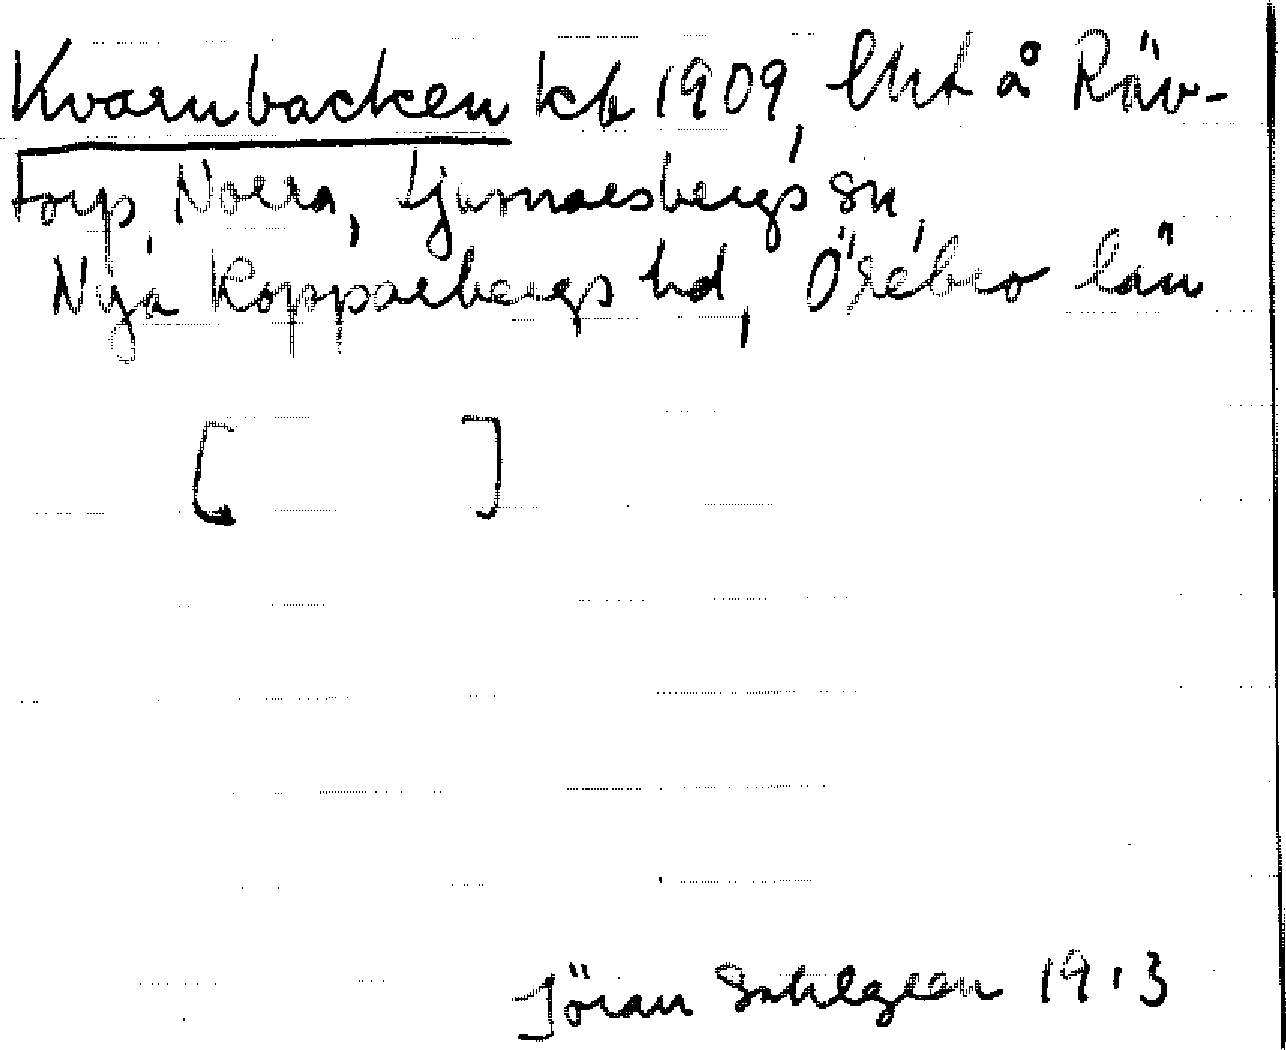 Kvarnbacken kb 1909, lht å Räv-
torp, Norra, Ljusnarsbergs sn,
Nya Kopparbergs hd, Örebro län
[ ]
Jöran Sahlgren 1913